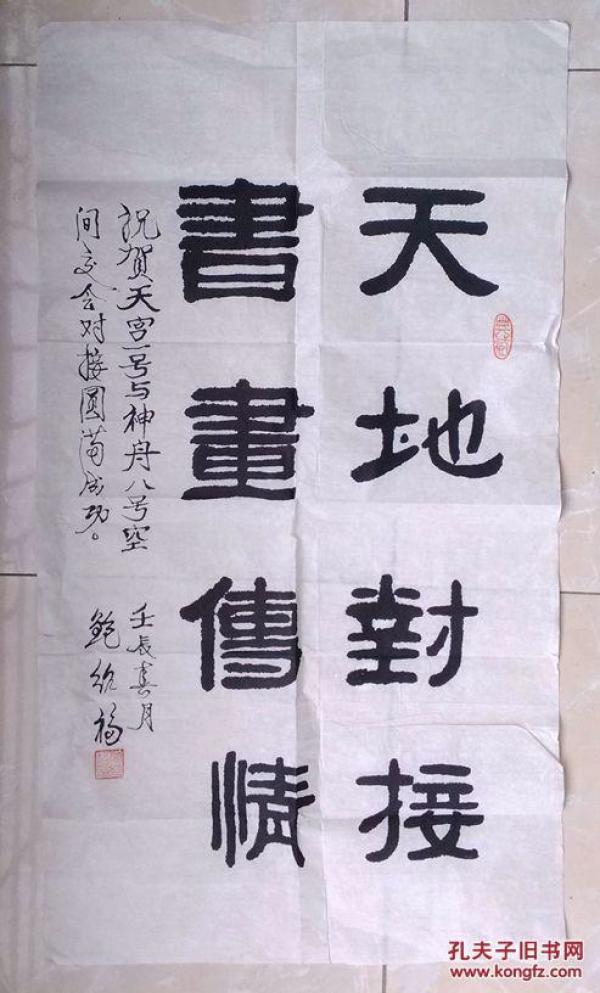 天地對接
書畫傳情
祝賀天宫一号与神舟八号空
间交会对接圆满成功。
壬辰春月
鲍
福
孔夫子旧书网
www.kongfz.com